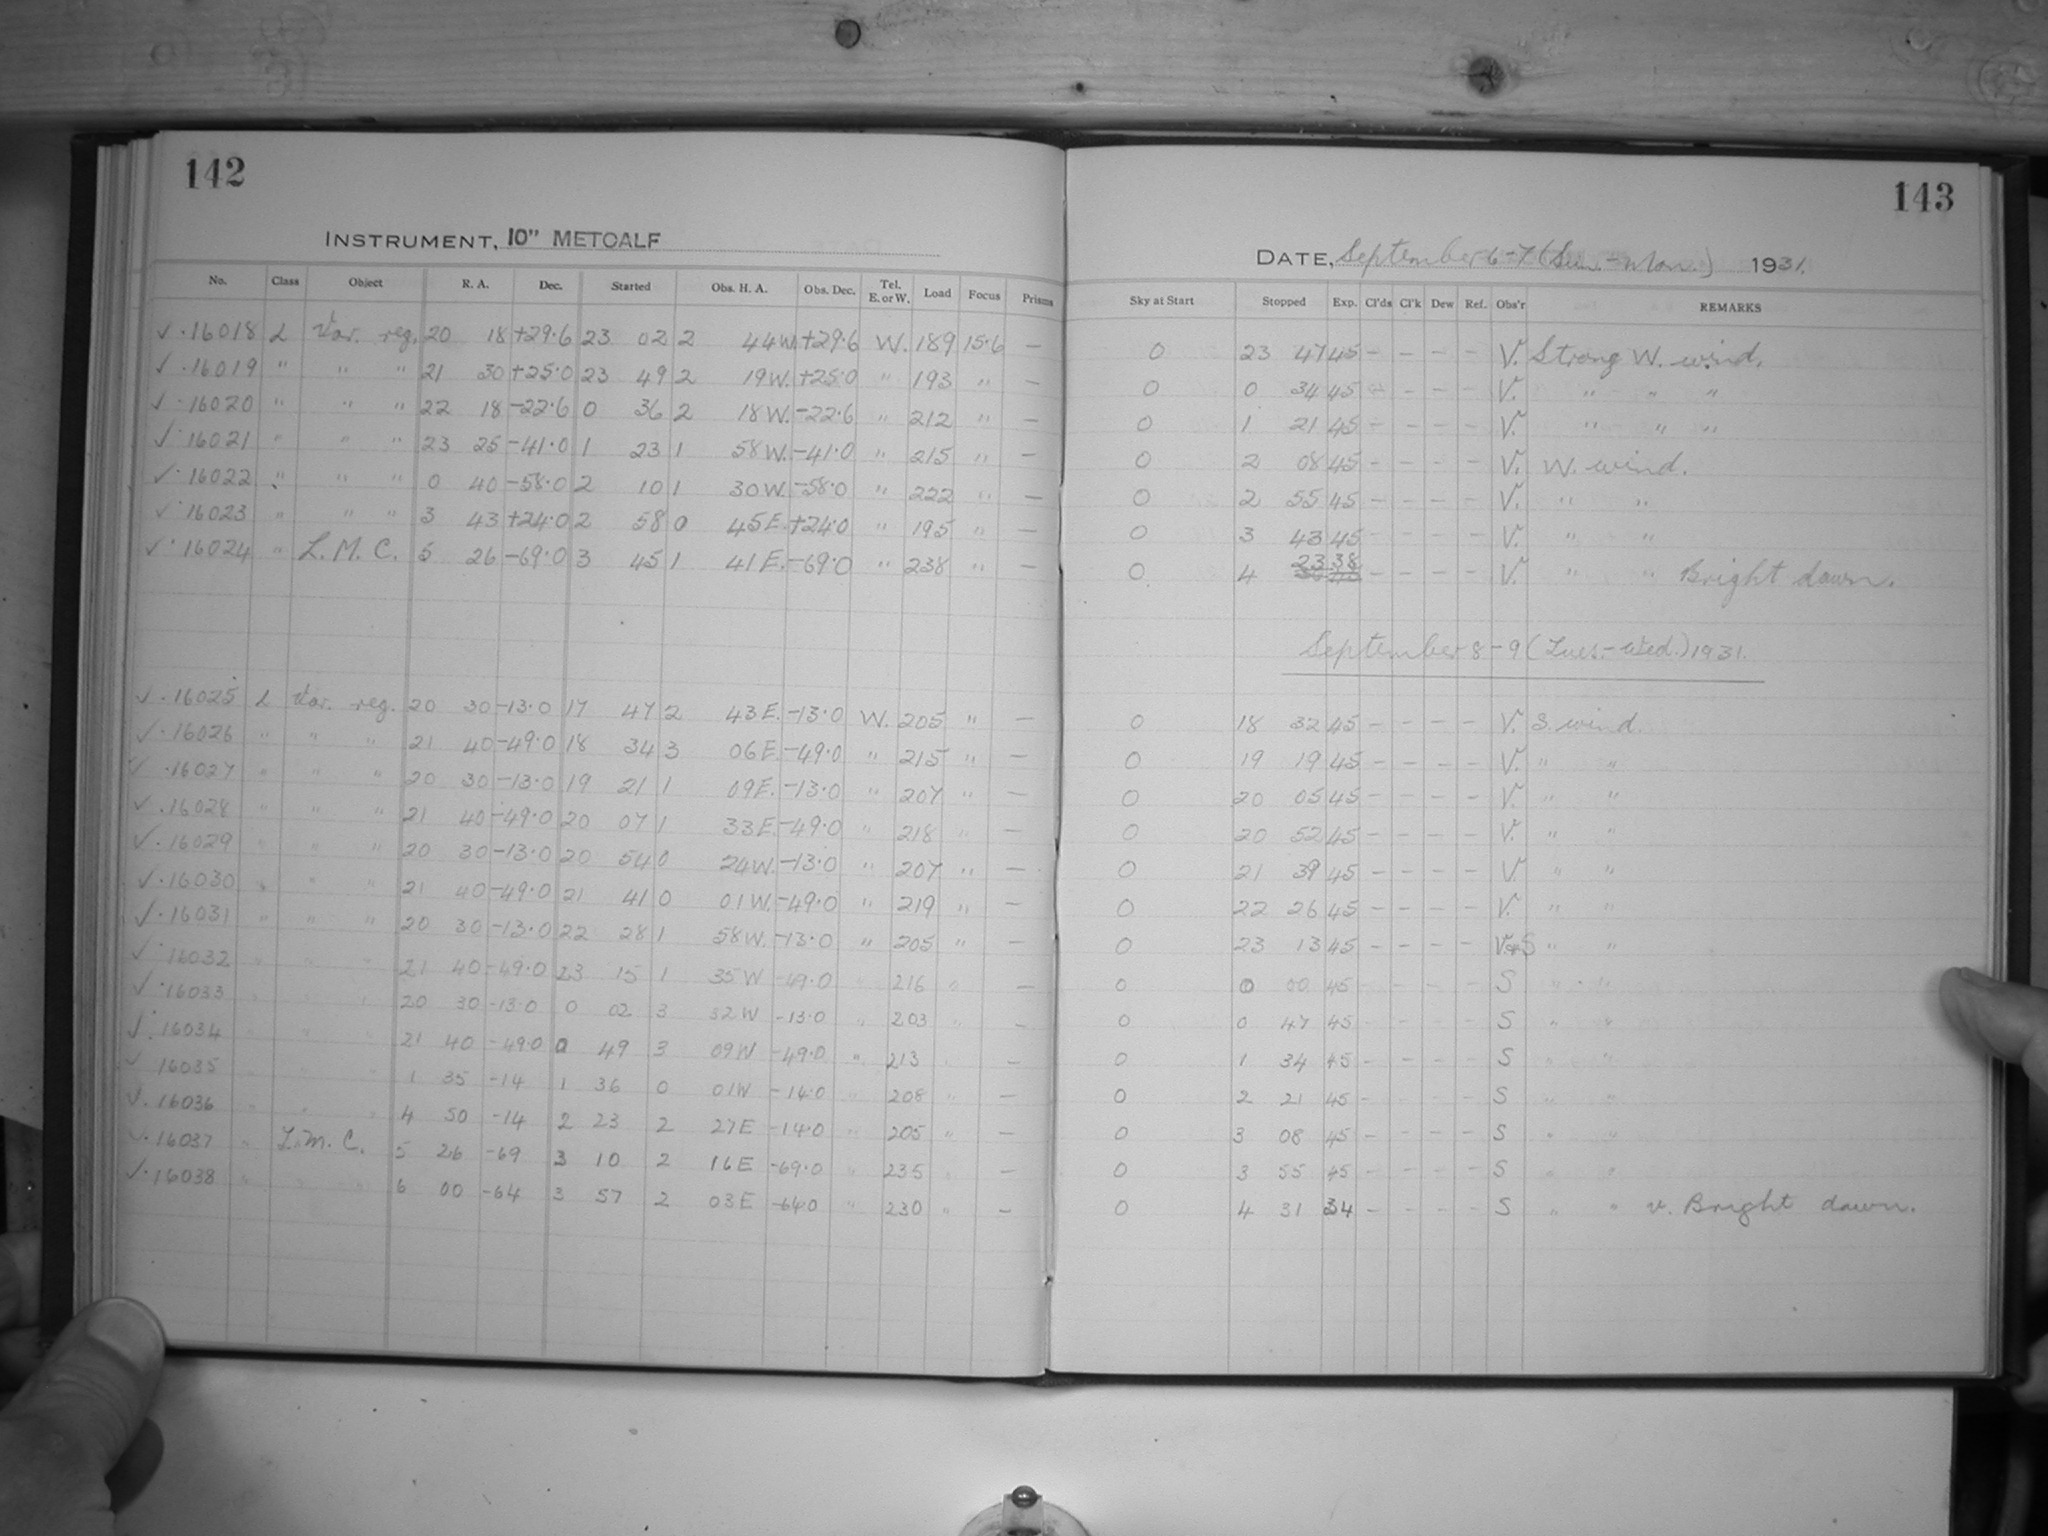 142
INSTRUMENT, 10" METCALF
No. Class Object R. A. Dec. Started Obs. H. A. Obs. Dec. Tel. E. or W. Load Focus Prisms
✓ · 16018 L Var. reg. 20 18 +29.6 23 02 2 44 W. +29.6 W. 189 15.6 —
✓ · 16019 " " " 21 30 +25.0 23 49 2 19 W. +25.0 " 193 " —
✓ · 16020 " " " 22 18 -22.6 0 36 2 18 W. -22.6 " 212 " —
✓ · 16021 " " " 23 25 -41.0 1 23 1 58 W. -41.0 " 215 " —
✓ · 16022 " " " 0 40 -58.0 2 10 1 30 W. -58.0 " 222 " —
✓ · 16023 " " " 3 43 +24.0 2 58 0 45 E. +24.0 " 195 " —
✓ · 16024 " L. M. C. 5 26 -69.0 3 45 1 41 E. -69.0 " 238 " —
✓ · 16025 L Var. reg. 20 30 -13.0 17 47 2 43 E. -13.0 W. 205 " —
✓ · 16026 " " " 21 40 -49.0 18 34 3 06 E. -49.0 " 215 " —
✓ · 16027 " " " 20 30 -13.0 19 21 1 09 E. -13.0 " 207 " —
✓ · 16028 " " " 21 40 -49.0 20 07 1 33 E. -49.0 " 218 " —
✓ · 16029 " " " 20 30 -13.0 20 54 0 24 W. -13.0 " 207 " —
✓ · 16030 " " " 21 40 -49.0 21 41 0 01 W. -49.0 " 219 " —
✓ · 16031 " " " 20 30 -13.0 22 28 1 58 W. -13.0 " 205 " —
✓ · 16032 " " " 21 40 -49.0 23 15 1 35 W -49.0 " 216 " —
✓ · 16033 " " " 20 30 -13.0 0 02 3 32 W -13.0 " 203 " —
✓ · 16034 " " " 21 40 -49.0 0 49 3 09 W -49.0 " 213 " —
✓ 16035 " " " 1 35 -14 1 36 0 01 W -14.0 " 208 " —
✓ · 16036 " " " 4 50 -14 2 23 2 27 E -14.0 " 205 " —
✓ · 16037 " L. M. C. 5 26 -69 3 10 2 16 E -69.0 " 235 " —
✓ · 16038 " 6 00 -64 3 57 2 03 E -64.0 " 230 " —
143
DATE, September 6-7 (Sun.-Mon.) 1931.
Sky at Start Stopped Exp. Cl'ds Cl'k Dew Ref. Obs'r REMARKS
0 23 47 45 - - - - V. Strong W. wind.
0 0 34 45 - - - - V. " " "
0 1 21 45 - - - - V. " " "
0 2 08 45 - - - - V. W. wind.
0 2 55 45 - - - - V. " "
0 3 43 45 - - - - V. " "
0 4 23 38 - - - - V. " " Bright dawn.
September 8-9 (Tues.-Wed.) 1931.
0 18 32 45 - - - - V. S. wind.
0 19 19 45 - - - - V. " "
0 20 05 45 - - - - V. " "
0 20 52 45 - - - - V. " "
0 21 39 45 - - - - V. " "
0 22 26 45 - - - - V. " "
0 23 13 45 - - - - V+S " "
0 0 00 45 - - - - S " "
0 0 47 45 - - - - S " "
0 1 34 45 - - - - S " "
0 2 21 45 - - - - S " "
0 3 08 45 - - - - S " "
0 3 55 45 - - - - S " "
0 4 31 34 - - - - S " " v. Bright dawn.